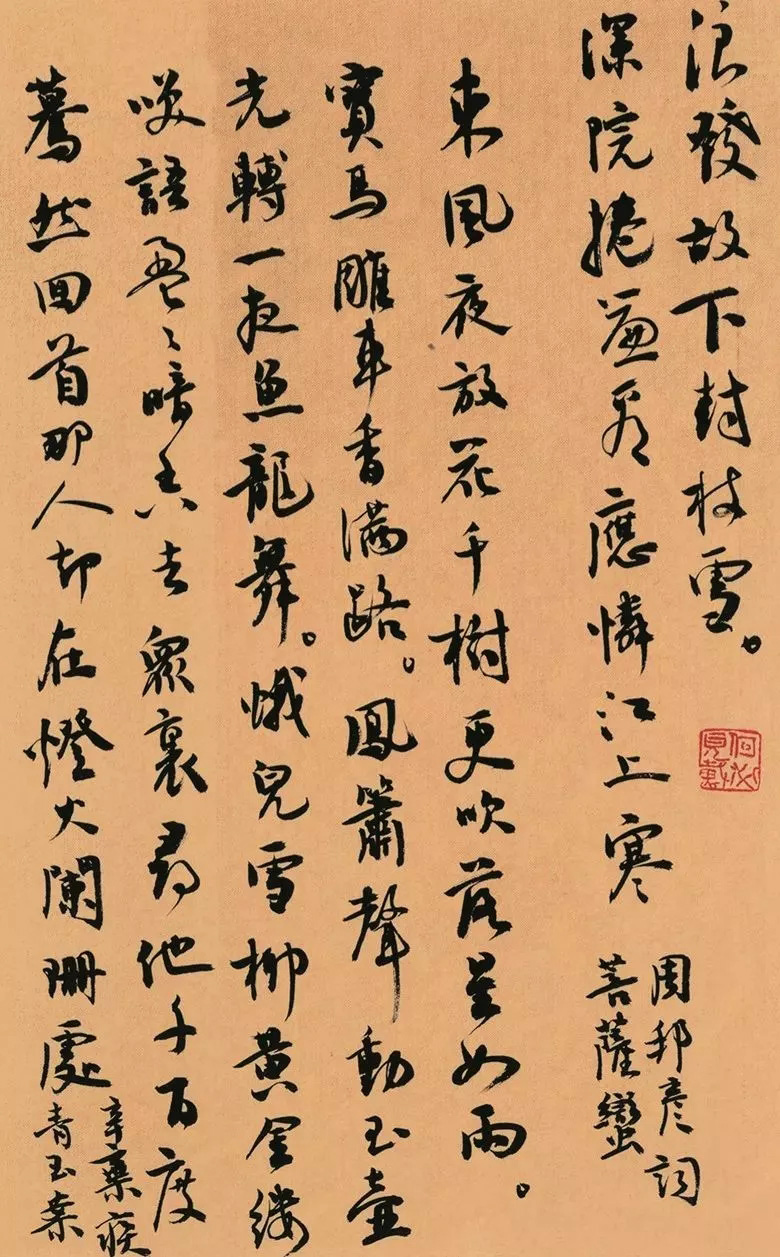 浪發故下封枝雪。
深院捲簾看應憐江上寒
周邦彥詞
菩薩蠻
東風夜放花千樹更吹落星如雨。
寶馬雕車香滿路。鳳簫聲動玉壺
光轉一夜魚龍舞。蛾兒雪柳黃金縷
咲語盈〻暗香去衆裏尋他千百度
驀然回首那人却在燈火闌珊處
辛棄疾
青玉案